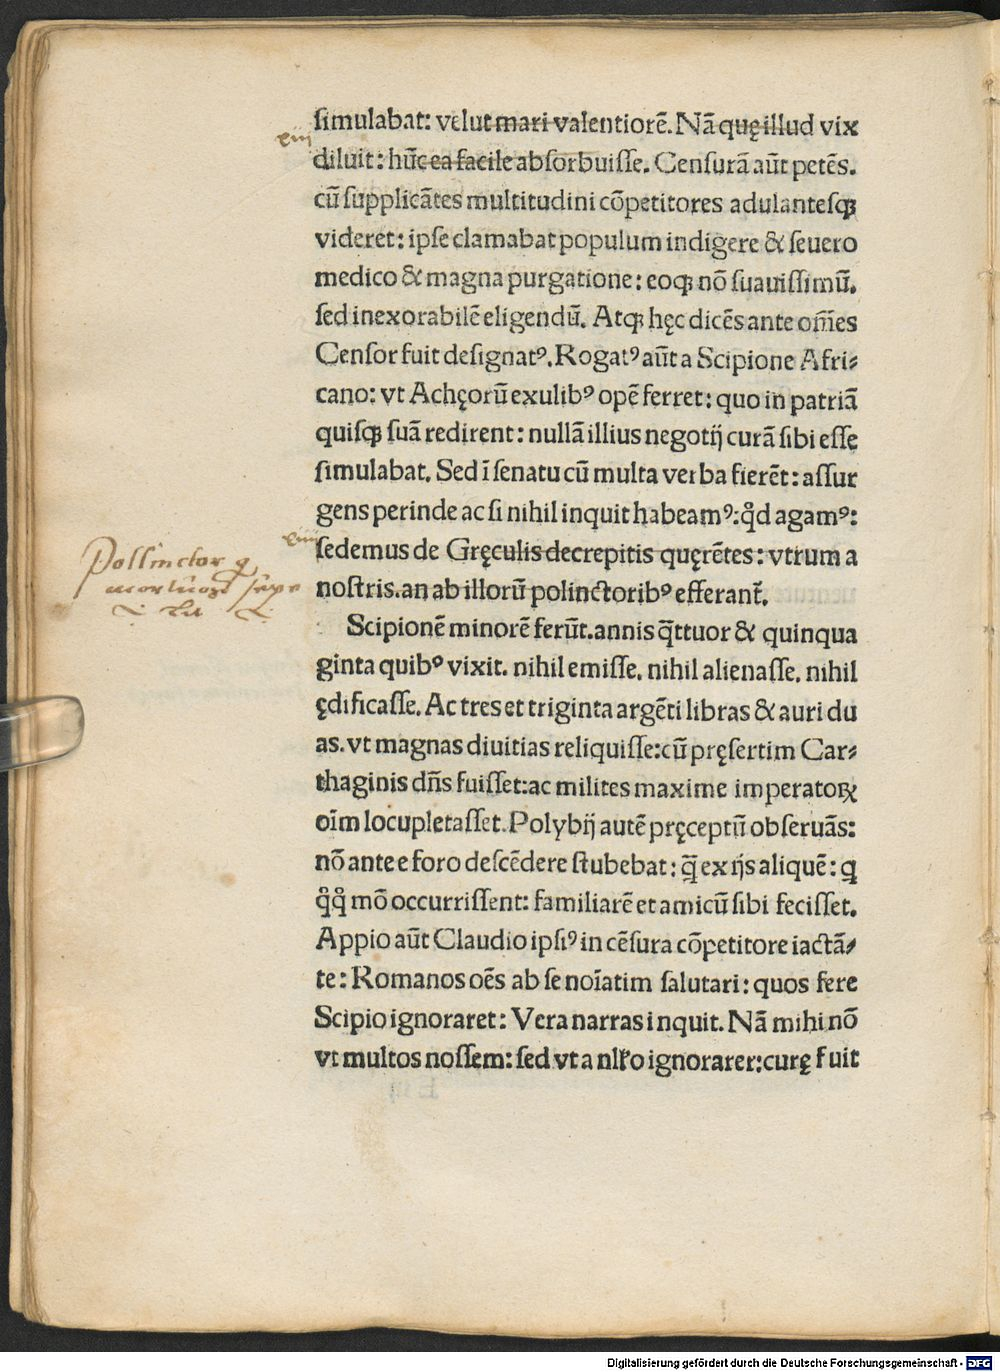 ſimulabat: velut mari valentiorē. Nā quę illud vix
xiij
diluit: hūc ea facile abſorbuiſſe. Cenſurā aūt petēs.
cū ſupplicātes multitudini cōpetitores adulanteſqꝫ
videret: ipſe clamabat populum indigere & ſeuero
medico & magna purgatione: eoqꝫ nō ſuauiſſimū.
ſed inexorabilē eligendū. Atqꝫ hęc dicēs ante om̄es
Cenſor fuit deſignatꝰ. Rogatꝰ aūt a Scipione Afri⸗
cano: vt Achęorū exulibꝰ opē ferret: quo in patriā
quiſqꝫ ſuā redirent: nullā illius negotij curā ſibi eſſe
ſimulabat. Sed ī ſenatu cū multa verba fierēt: aſſur
gens perinde ac ſi nihil inquit habeamꝰ: qd̊ agamꝰ:
xiiij
ſedemus de Gręculis decrepitis quęrētes: vtrum a
noſtris. an ab illorū polinctoribꝰ efferant̄.
Pollinctor q
mortuoꝝ ſepe
Scipionē minorē ferūt. annis q̄ttuor & quinqua
ginta quibꝰ vixit. nihil emiſſe. nihil alienaſſe. nihil
ędificaſſe. Ac tres et triginta argēti libras & auri du
as. vt magnas diuitias reliquiſſe: cū pręſertim Car⸗
thaginis dn̄s fuiſſet: ac milites maxime imperatoꝝ
oīm locupletaſſet. Polybij autē pręceptū obſeruās:
nō ante e foro deſcēdere ſtubebat: q̄ꝫ ex ijs aliquē: q
q̊q̊ mō occurriſſent: familiarē et amicū ſibi feciſſet.
Appio aūt Claudio ipſiꝰ in cēſura cōpetitore iactā⸗
te: Romanos oēs ab ſe noīatim ſalutari: quos fere
Scipio ignoraret: Vera narras inquit. Nā mihi nō
vt multos noſſem: ſed vt a nll̓o ignorarer: curę fuit
Digitalisierung gefördert durch die Deutsche Forschungsgemeinschaft - DFG